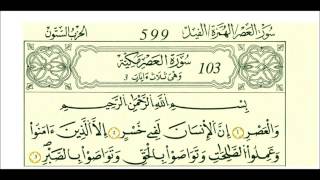 سُورَةُ العَصْرِ الهُمَزَةِ الفِيلِ 599 الحِزْبُ السِّتُّونَ
سُورَةُ العَصْرِ مَكِّيَّة 103
وَهِيَ ثَلَاثُ ءَايَاتٍ 3
بِسْمِ اللَّهِ الرَّحْمَٰنِ الرَّحِيمِ
وَالْعَصْرِ ① إِنَّ الْإِنسَٰنَ لَفِے خُسْرٍ ② إِلَّا الَّذِينَ ءَامَنُواْ
وَعَمِلُواْ الصَّٰلِحَٰتِ وَتَوَاصَوْاْ بِالْحَقِّ وَتَوَاصَوْاْ بِالصَّبْرِ ③